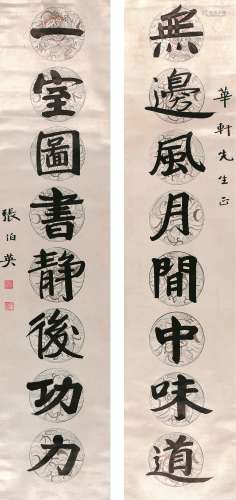 無邊風月閒中味道
華軒先生正
一室圖書静後功力
張伯英